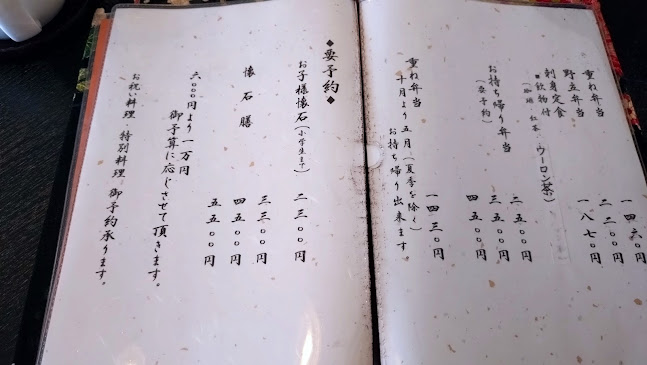 重ね弁当 一四六〇円
野立弁当 二二〇〇円
刺身定食 一八七〇円
■飲物付
(珈琲・紅茶・ウーロン茶)
お持ち帰り弁当 二五〇〇円
(要予約) 三五〇〇円
四五〇〇円
重ね弁当 一四三〇円
十月より五月(夏季を除く)
お持ち帰り出来ます。
◆要予約◆
お子様懐石(小学生まで) 二三〇〇円
懐石膳 三三〇〇円
四五〇〇円
五五〇〇円
六〇〇〇円より一万円
御予算に応じさせて頂きます。
お祝い料理・特別料理 御予約承ります。